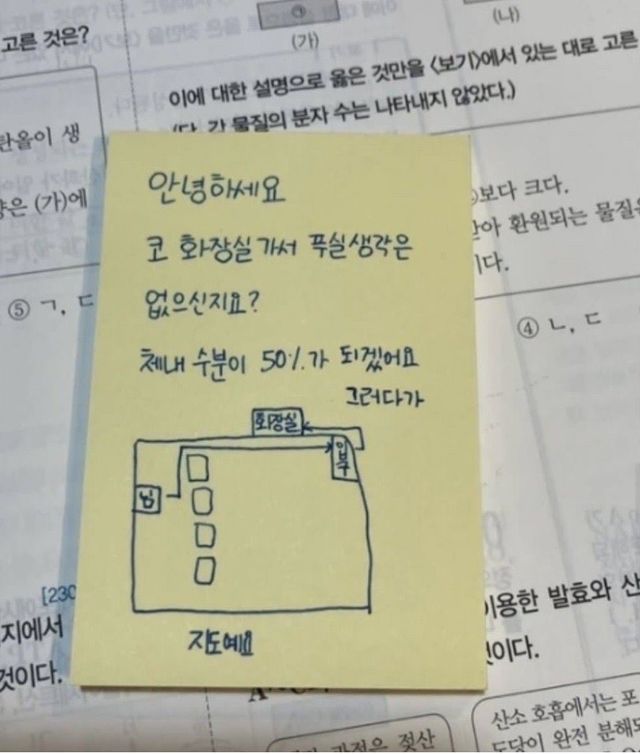 고른 것은?
(가)
(나)
이에 대한 설명으로 옳은 것만을 <보기>에서 있는 대로 고른
(단, 각 물질의 분자 수는 나타내지 않았다.)
탄올이 생
(가)에
보다 크다.
환원되는 물질은
이다.
⑤ ㄱ, ㄷ
④ ㄴ, ㄷ
안녕하세요
코 화장실가서 푸실생각은
없으신지요?
체내 수분이 50%가 되겠어요
그러다가
화장실
입구
님
지도예요
[230
지에서
것이다.
이용한 발효와 산
이다.
산소 호흡에서는 포
도당이 완전 분해되
과정은 젖산